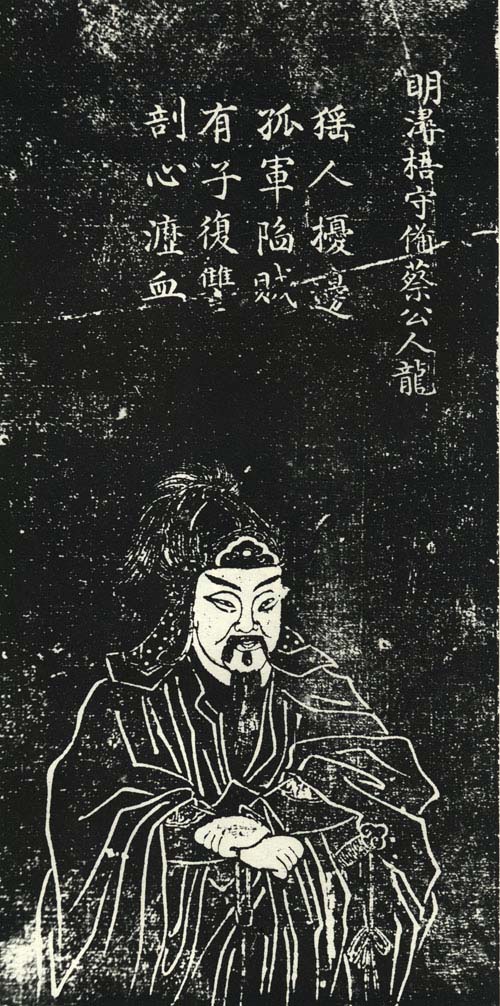 明潯梧守備蔡公人龍
猺人擾邊
孤軍陷賊
有子復讐
剖心瀝血